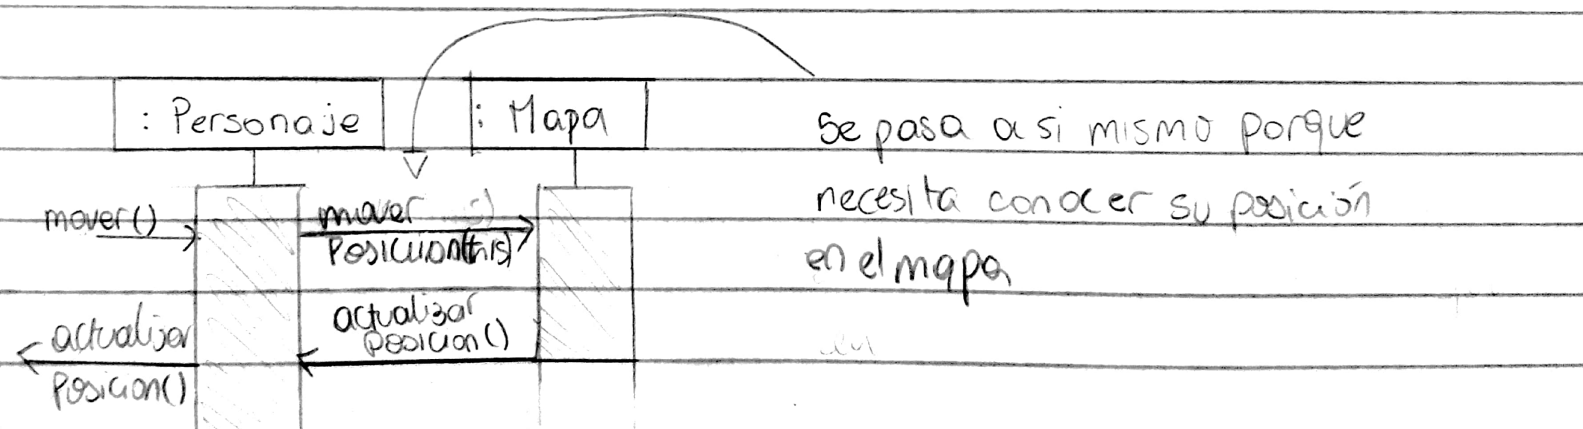 : Personaje
: Mapa
se pasa a si mismo porque
necesita conocer su posición
en el mapa
mover()
mover
posicion(this)
actualizar
posicion()
actualizar
posicion()